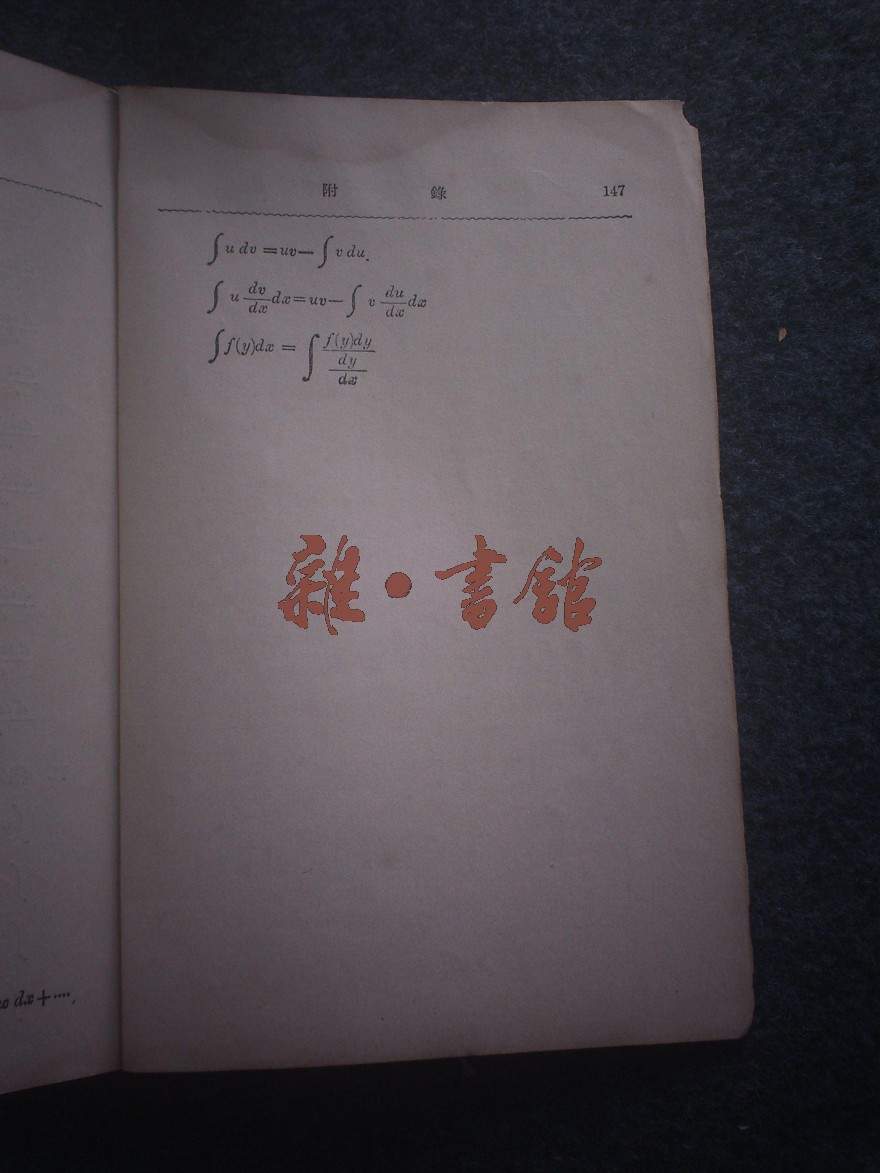 附 錄 147
∫ u dv = uv − ∫ v du.
∫ u dv/dx dx = uv − ∫ v du/dx dx
∫ f(y)dx = ∫ f(y)dy / (dy/dx)
雜•書館
dx + ····.